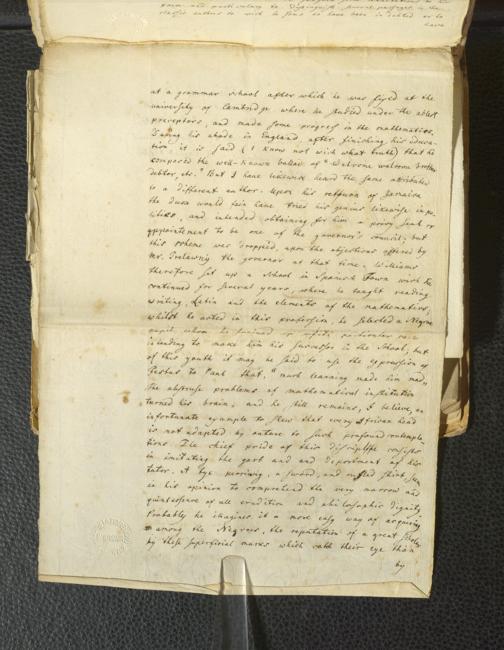 have
at a grammar school after which he was fixed at the
university of Cambridge where he studied under the ablest
preceptors, and made some progress in the mathematics.
During his abode in England, after finishing his educa-
tion it is said (I know not with what truth) that he
composed the well-known ballad of "Welcome welcome brother
debtor, etc." But I have likewise heard the same attributed
to a different author. Upon his return to Jamaica
the duke would fain have tried his genius likewise in po-
litics, and intended obtaining for him a privy seal or
appointement to be one of the governor's council; but
this scheme was dropped, upon the objections offered by
Mr. Trelawny the governor at that time. Williams
therefore set up a School in Spanish Town which he
continued for several years, where he taught reading
writing, Latin and the elements of the mathematics;
whilst he acted in this profession, he selected a Negroe
pupil whom he trained up particular care
intending to make him his successor in the School; but
of this youth it may be said to use the expression of
Festus to Paul that, "much learning made him mad.
The abstruse problems of mathematical institution
turned his brain; and he still remains, I believe, an
infortunate example to shew that every African head
is not adapted by nature to such profound contempla-
tions. The chief pride of this disciple consists
in imitating the port and and deportment of his
tutor. A tye perriwig, a sword, and ruffled shirt, seem
in his opinion to comprehend the very marrow and
quintessence of all erudition and philosophic dignity.
Probably he imagines it a more easy way of acquiring
among the Negroes, the reputation of a great scholar
by these superficial marks which catch their eye than
by